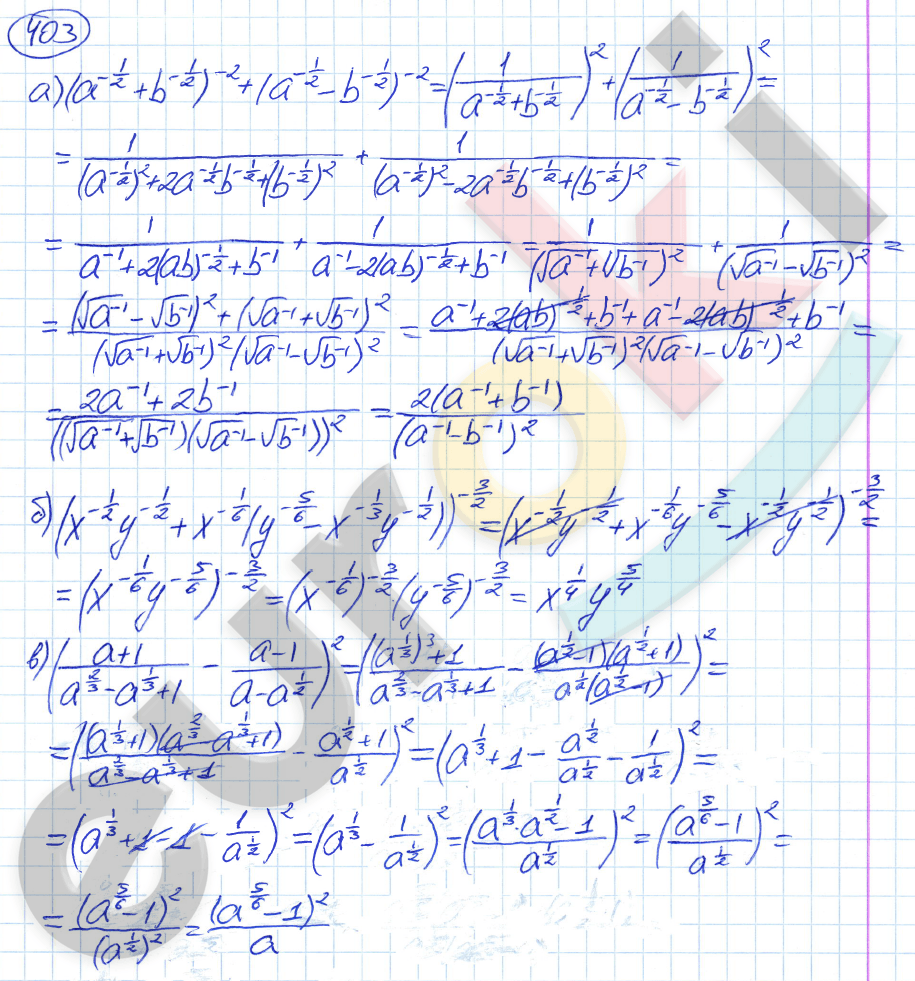 403
а) (a^{-1/2} + b^{-1/2})^{-2} + (a^{-1/2} - b^{-1/2})^{-2} = (1/(a^{-1/2} + b^{-1/2}))^2 + (1/(a^{-1/2} - b^{-1/2}))^2 =
= 1/((a^{-1/2})^2 + 2a^{-1/2}b^{-1/2} + (b^{-1/2})^2) + 1/((a^{-1/2})^2 - 2a^{-1/2}b^{-1/2} + (b^{-1/2})^2) =
= 1/(a^{-1} + 2(ab)^{-1/2} + b^{-1}) + 1/(a^{-1} - 2(ab)^{-1/2} + b^{-1}) = 1/(√a^{-1} + √b^{-1})^2 + 1/(√a^{-1} - √b^{-1})^2 =
= ((√a^{-1} - √b^{-1})^2 + (√a^{-1} + √b^{-1})^2)/((√a^{-1} + √b^{-1})^2 (√a^{-1} - √b^{-1})^2) = (a^{-1} + 2(ab)^{-1/2} + b^{-1} + a^{-1} - 2(ab)^{-1/2} + b^{-1})/((√a^{-1} + √b^{-1})^2 (√a^{-1} - √b^{-1})^2) =
= (2a^{-1} + 2b^{-1})/((√a^{-1} + √b^{-1})(√a^{-1} - √b^{-1}))^2 = 2(a^{-1} + b^{-1})/(a^{-1} - b^{-1})^2
б) (x^{-1/2}y^{-1/2} + x^{-1/6}(y^{-5/6} - x^{-1/3}y^{-1/2}))^{-3/2} = (x^{-1/2}y^{-1/2} + x^{-1/6}y^{-5/6} - x^{-1/2}y^{-1/2})^{-3/2} =
= (x^{-1/6}y^{-5/6})^{-3/2} = (x^{-1/6})^{-3/2}(y^{-5/6})^{-3/2} = x^{1/4}y^{5/4}
в) ((a+1)/(a^{2/3} - a^{1/3} + 1) - (a-1)/(a - a^{1/2}))^2 = (((a^{1/3})^3 + 1)/(a^{2/3} - a^{1/3} + 1) - (a^{1/2} - 1)(a^{1/2} + 1)/(a^{1/2}(a^{1/2} - 1)))^2 =
= ((a^{1/3} + 1)(a^{2/3} - a^{1/3} + 1)/(a^{2/3} - a^{1/3} + 1) - (a^{1/2} + 1)/a^{1/2})^2 = (a^{1/3} + 1 - a^{1/2}/a^{1/2} - 1/a^{1/2})^2 =
= (a^{1/3} + 1 - 1 - 1/a^{1/2})^2 = (a^{1/3} - 1/a^{1/2})^2 = ((a^{1/3}·a^{1/2} - 1)/a^{1/2})^2 = ((a^{5/6} - 1)/a^{1/2})^2 =
= (a^{5/6} - 1)^2/(a^{1/2})^2 = (a^{5/6} - 1)^2/a
euroki